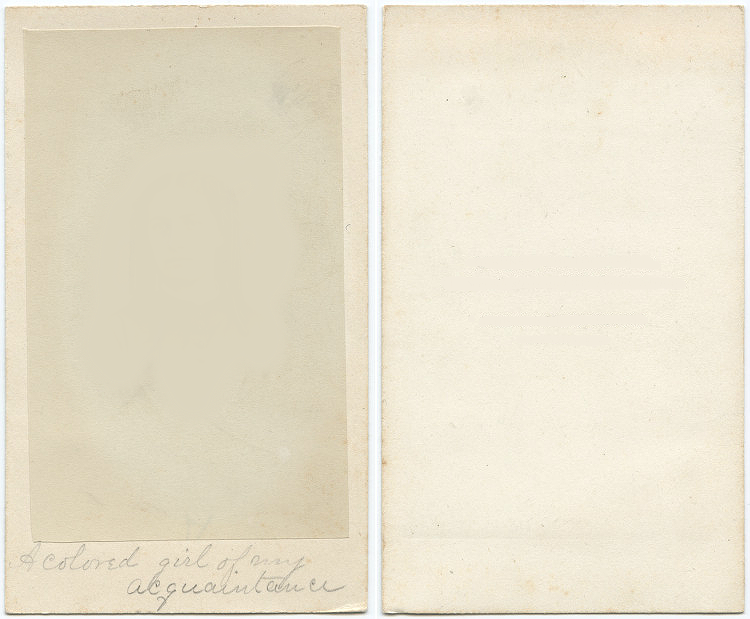 A colored girl of my
acquaintance